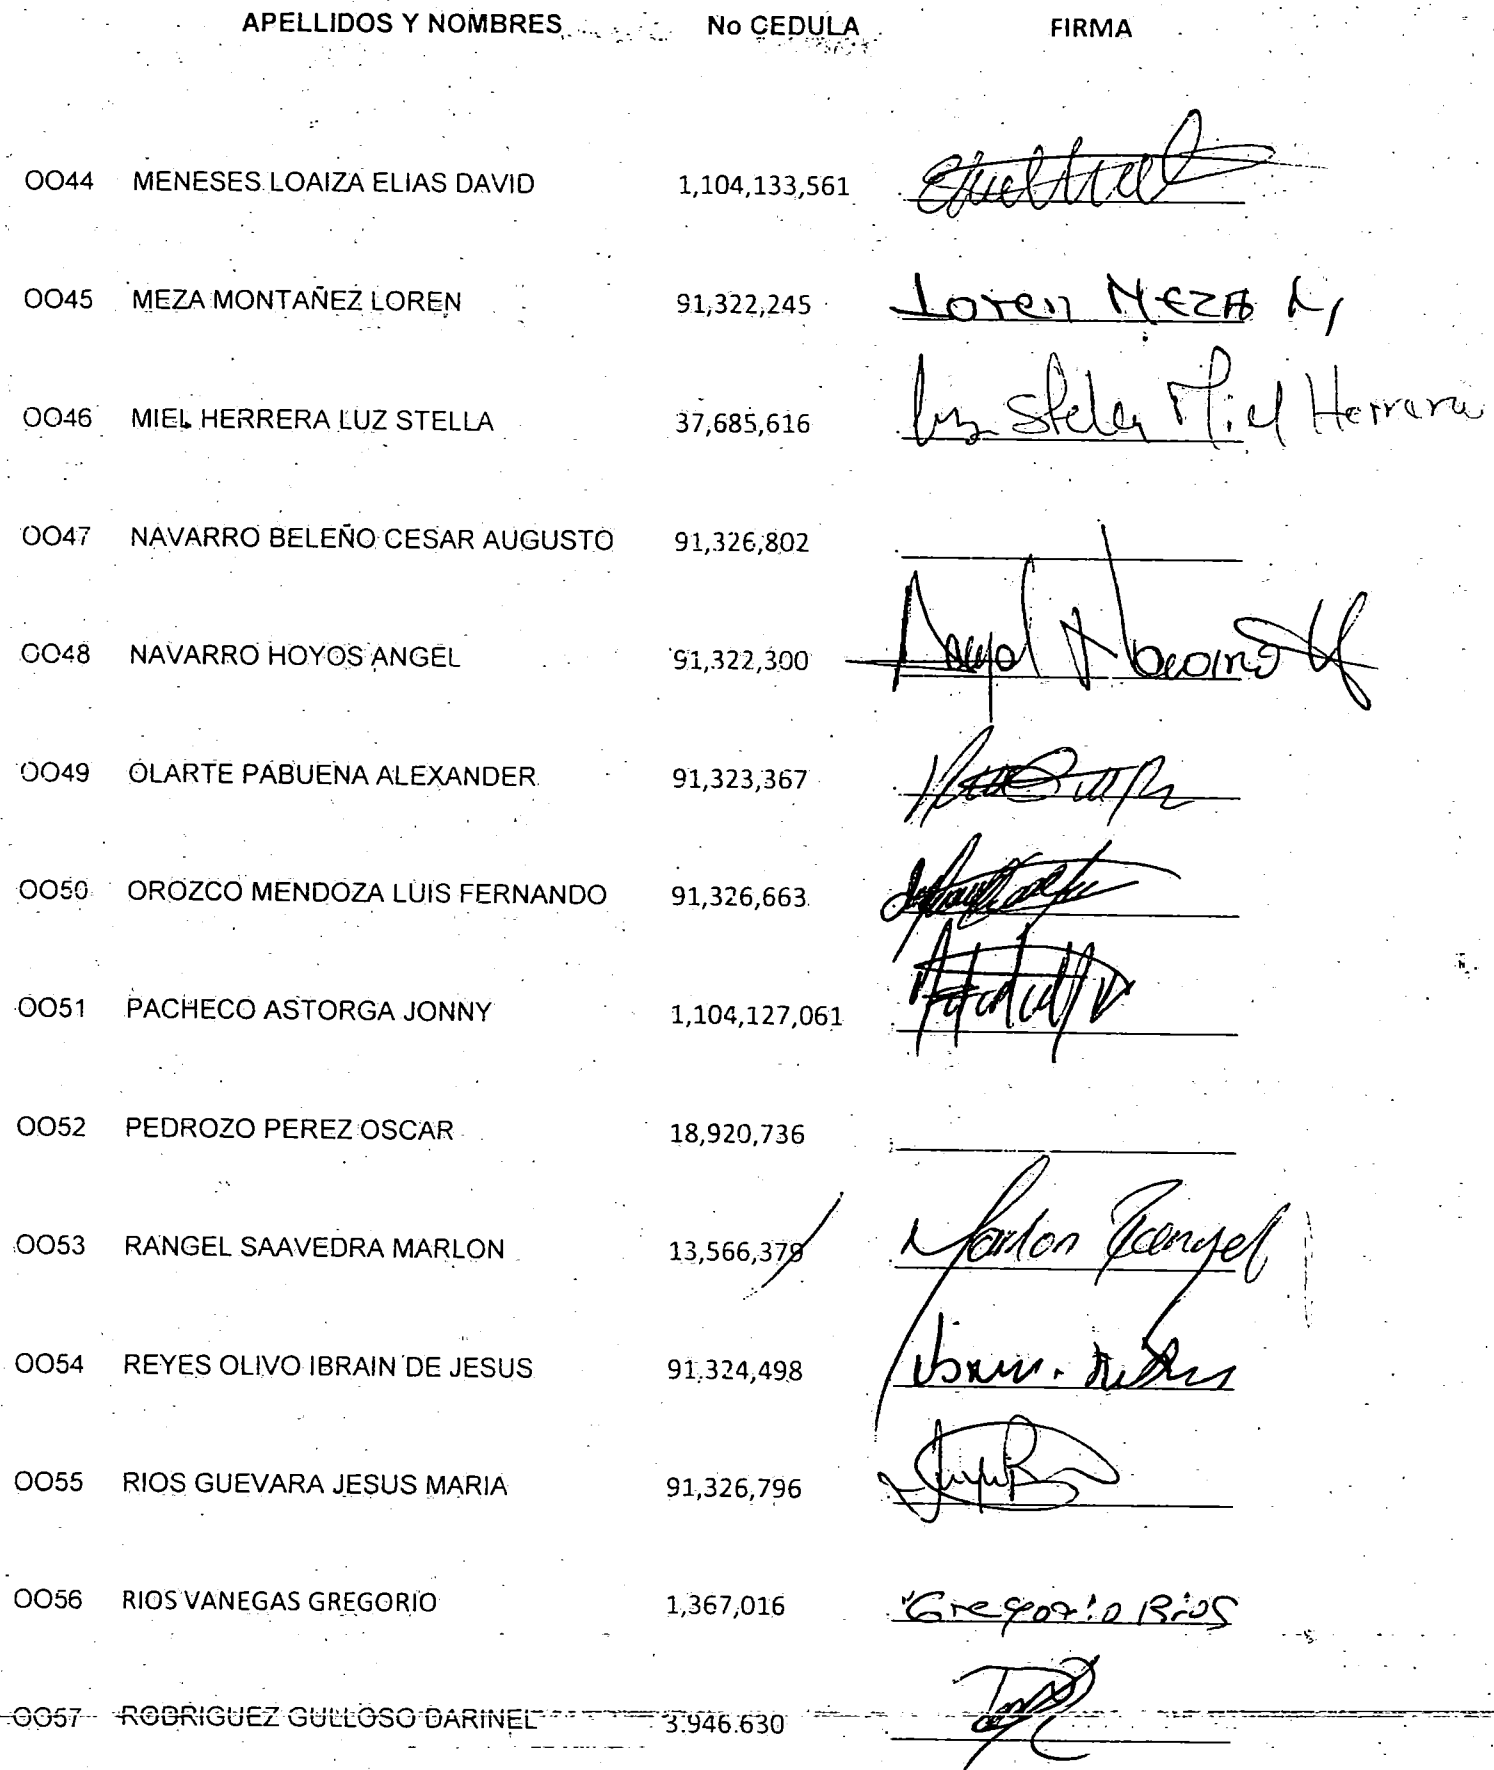 APELLIDOS Y NOMBRES No CEDULA FIRMA
OO44 MENESES LOAIZA ELIAS DAVID 1,104,133,561
OO45 MEZA MONTAÑEZ LOREN 91,322,245 Loren MEZA M,
OO46 MIEL HERRERA LUZ STELLA 37,685,616 Luz Stella Miel Herrera
OO47 NAVARRO BELEÑO CESAR AUGUSTO 91,326,802
OO48 NAVARRO HOYOS ANGEL 91,322,300 Angel Navarro H
OO49 OLARTE PABUENA ALEXANDER 91,323,367
OO50 OROZCO MENDOZA LUIS FERNANDO 91,326,663
OO51 PACHECO ASTORGA JONNY 1,104,127,061
OO52 PEDROZO PEREZ OSCAR 18,920,736
OO53 RANGEL SAAVEDRA MARLON 13,566,379 Marlon Rangel
OO54 REYES OLIVO IBRAIN DE JESUS 91,324,498
OO55 RIOS GUEVARA JESUS MARIA 91,326,796
OO56 RIOS VANEGAS GREGORIO 1,367,016 Gregorio Rios
OO57 RODRIGUEZ GULLOSO DARINEL 3.946.630